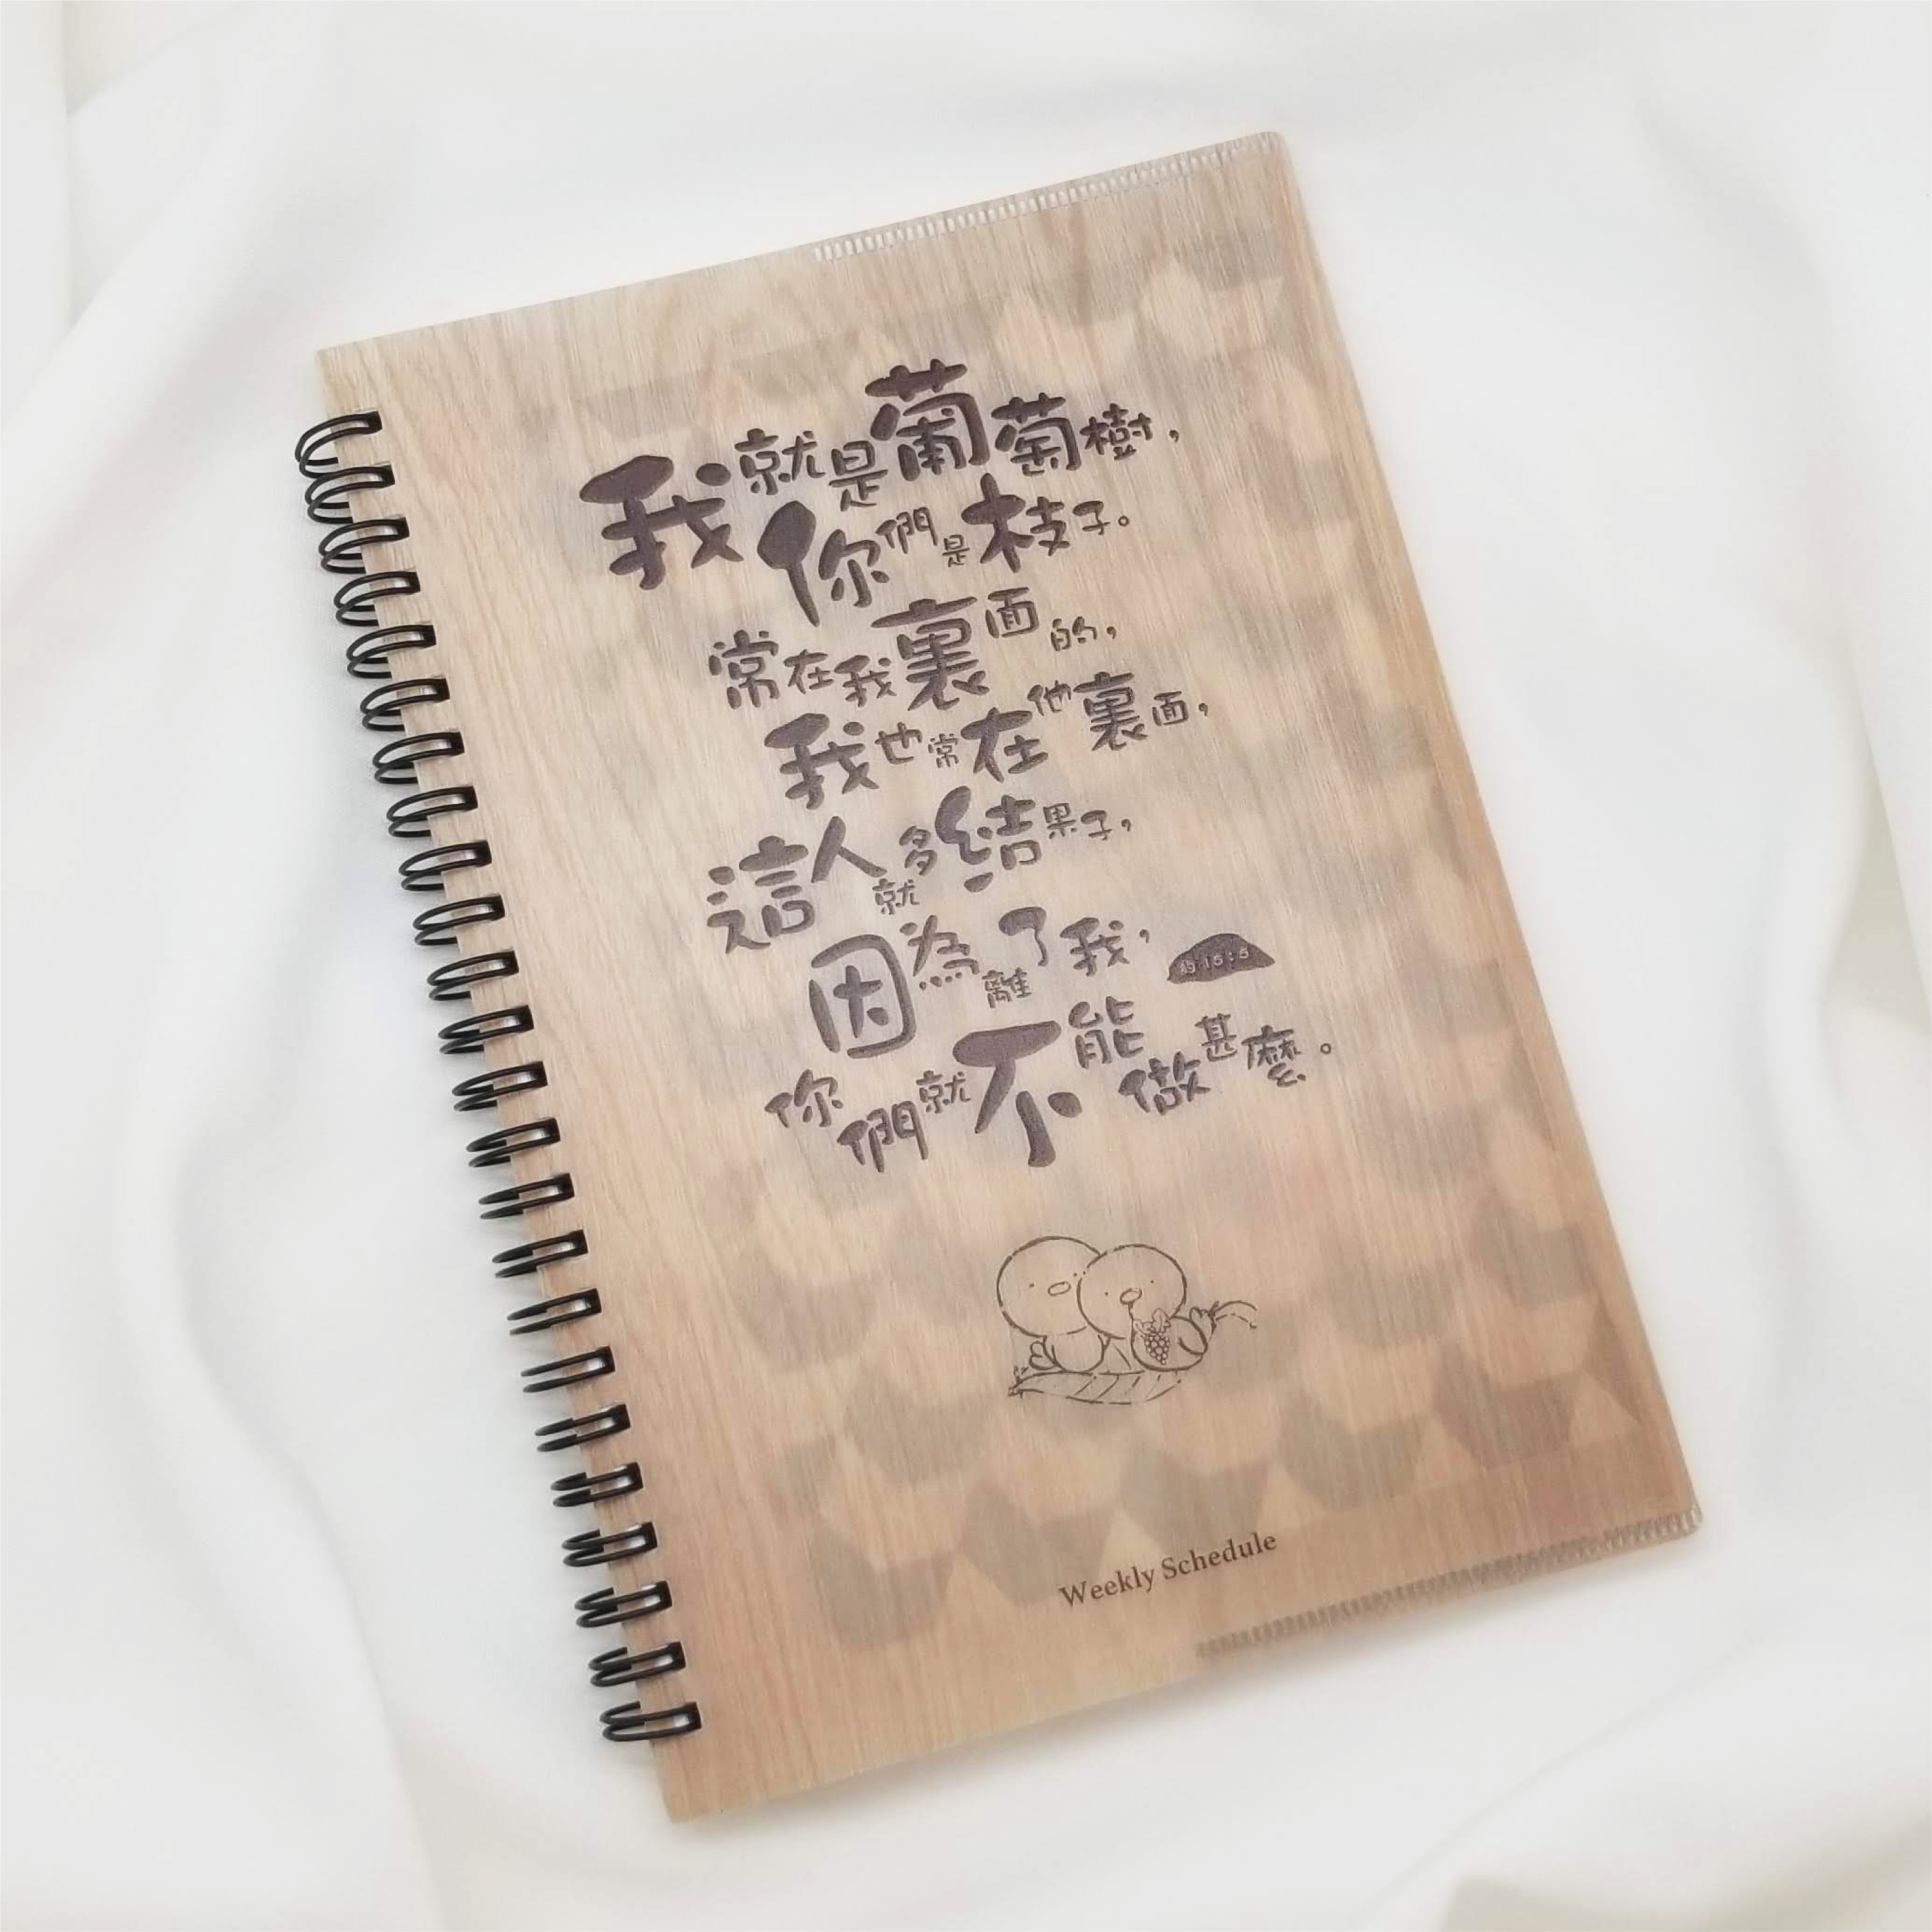 我就是葡萄樹，
你們是枝子。
常在我裏面的，
我也常在他裏面，
這人就多結果子，
因為離了我，
約 15：5
你們就不能做甚麼。
Weekly Schedule